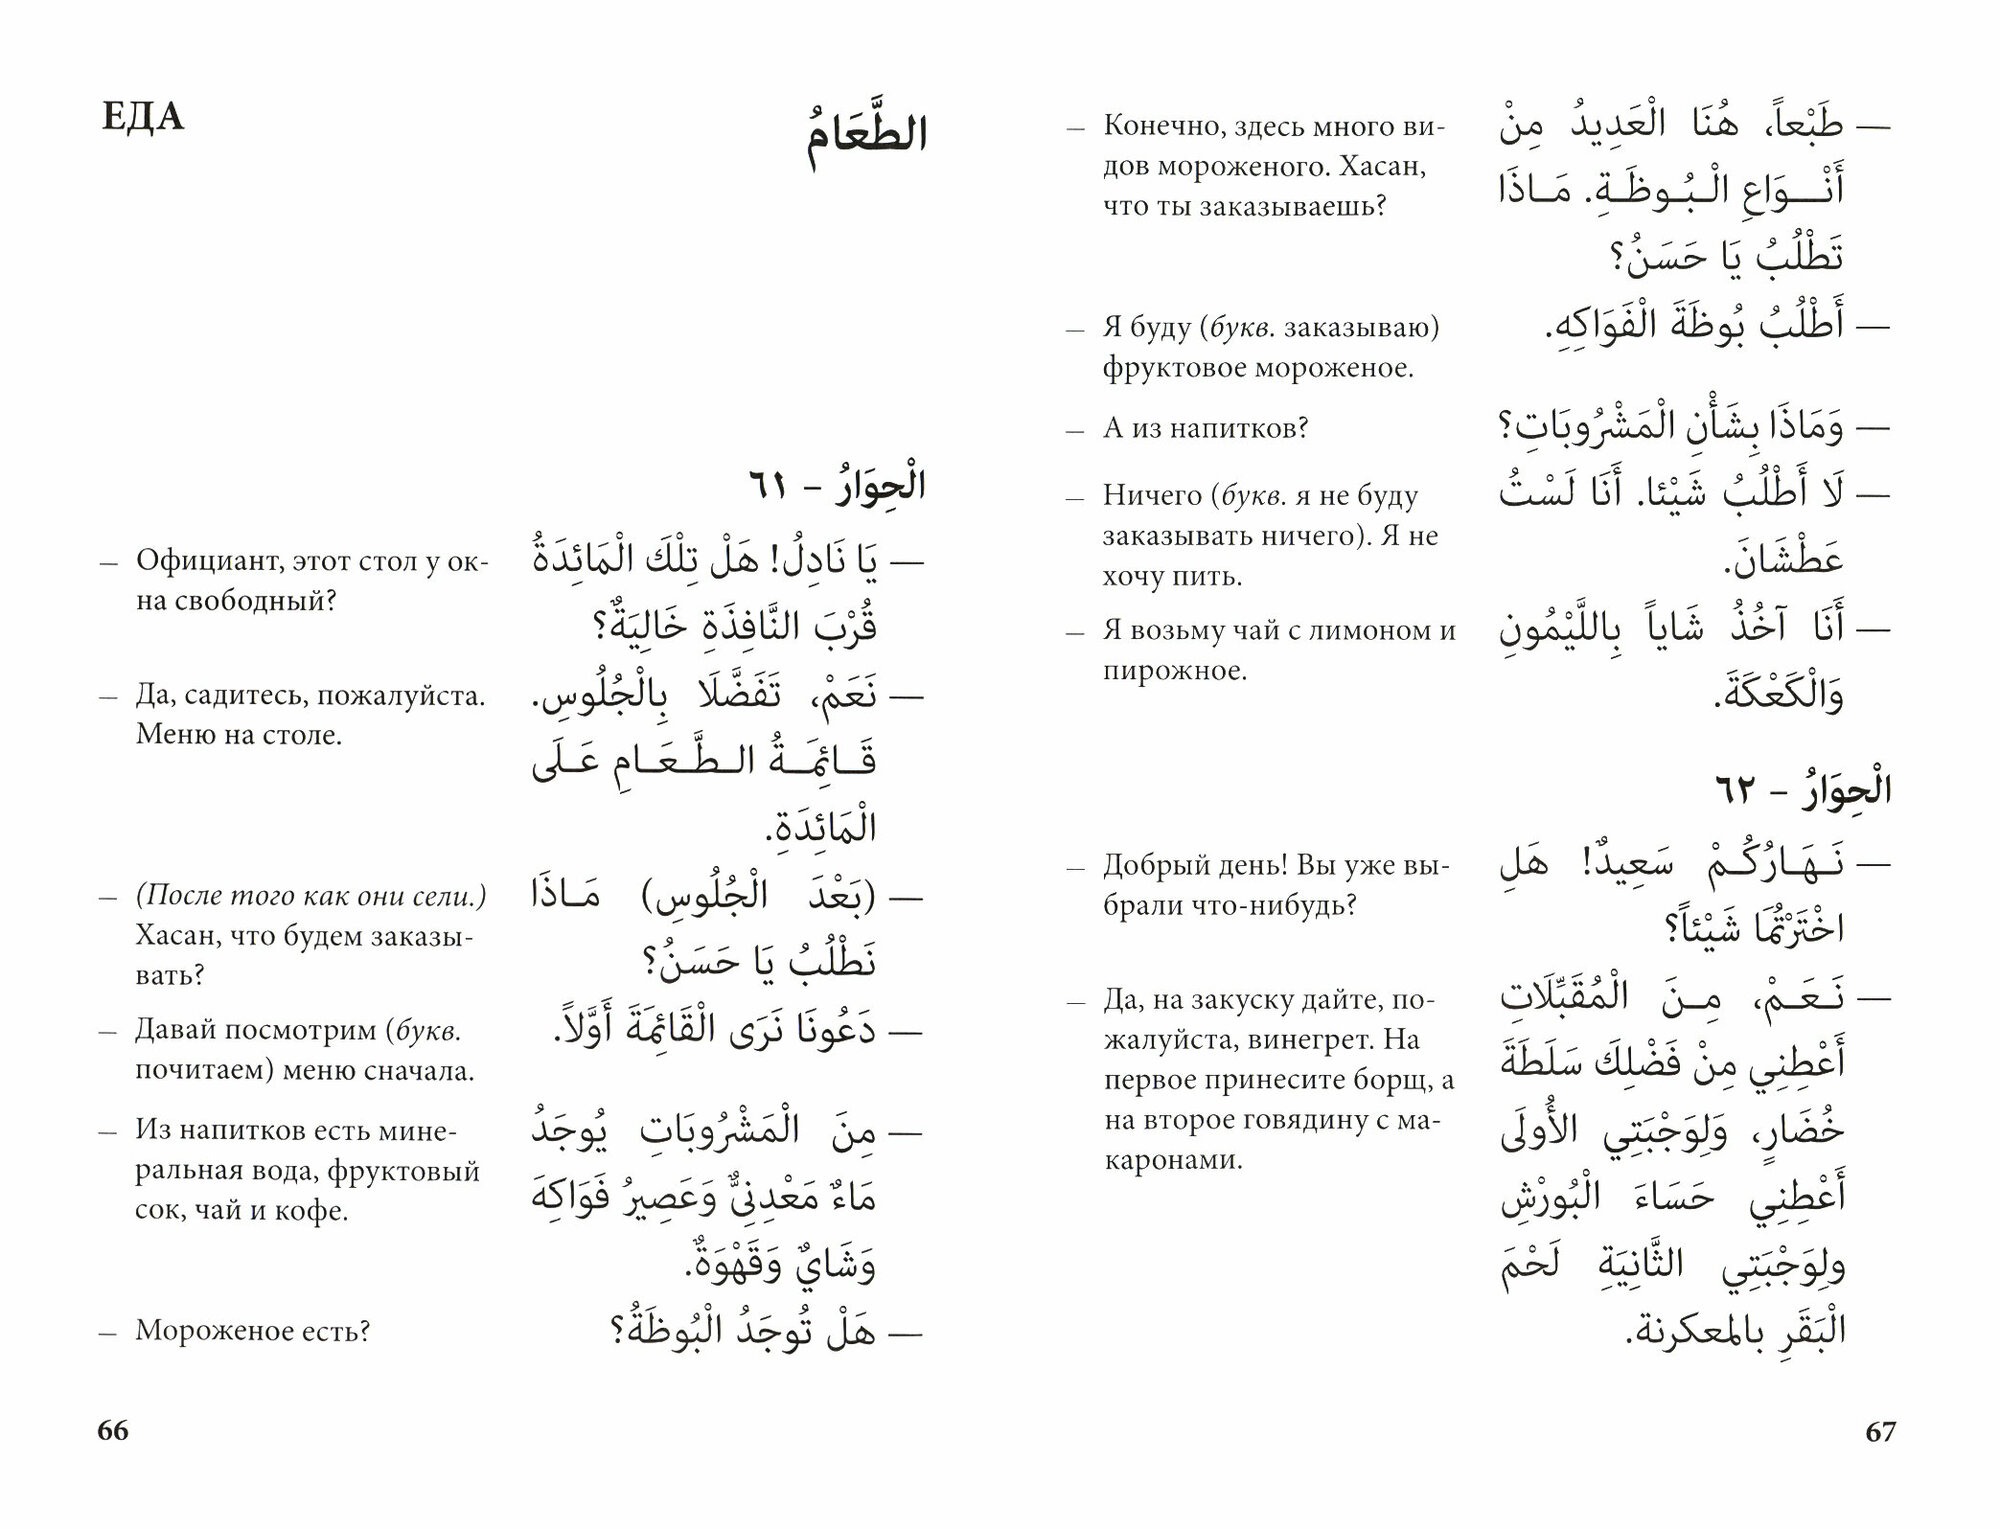 ЕДА
الطَّعَامُ
الْحِوَارُ – ٦١
– Официант, этот стол у ок-
на свободный?
— يَا نَادِلُ! هَلْ تِلْكَ الْمَائِدَةُ
قُرْبَ النَّافِذَةِ خَالِيَةٌ؟
– Да, садитесь, пожалуйста.
Меню на столе.
— نَعَمْ، تَفَضَّلَا بِالْجُلُوسِ.
قَائِمَةُ الطَّعَامِ عَلَى
الْمَائِدَةِ.
– (После того как они сели.)
Хасан, что будем заказы-
вать?
— (بَعْدَ الْجُلُوسِ) مَاذَا
نَطْلُبُ يَا حَسَنُ؟
– Давай посмотрим (букв.
почитаем) меню сначала.
— دَعُونَا نَرَى الْقَائِمَةَ أَوَّلاً.
– Из напитков есть мине-
ральная вода, фруктовый
сок, чай и кофе.
— مِنَ الْمَشْرُوبَاتِ يُوجَدُ
مَاءٌ مَعْدِنِيٌّ وَعَصِيرُ فَوَاكِهَ
وَشَايٌ وَقَهْوَةٌ.
– Мороженое есть?
— هَلْ تُوجَدُ الْبُوظَةُ؟
66
– Конечно, здесь много ви-
дов мороженого. Хасан,
что ты заказываешь?
— طَبْعاً، هُنَا الْعَدِيدُ مِنْ
أَنْوَاعِ الْبُوظَةِ. مَاذَا
تَطْلُبُ يَا حَسَنُ؟
– Я буду (букв. заказываю)
фруктовое мороженое.
— أَطْلُبُ بُوظَةَ الْفَوَاكِهِ.
– А из напитков?
— وَمَاذَا بِشَأْنِ الْمَشْرُوبَاتِ؟
– Ничего (букв. я не буду
заказывать ничего). Я не
хочу пить.
— لَا أَطْلُبُ شَيْئا. أَنَا لَسْتُ
عَطْشَانَ.
– Я возьму чай с лимоном и
пирожное.
— أَنَا آخُذُ شَاياً بِاللَّيْمُونِ
وَالْكَعْكَةَ.
الْحِوَارُ – ٦٢
– Добрый день! Вы уже вы-
брали что-нибудь?
— نَهَارُكُمْ سَعِيدٌ! هَلِ
اخْتَرْتُمَا شَيْئاً؟
– Да, на закуску дайте, по-
жалуйста, винегрет. На
первое принесите борщ, а
на второе говядину с ма-
каронами.
— نَعَمْ، مِنَ الْمُقَبِّلَاتِ
أَعْطِنِي مِنْ فَضْلِكَ سَلَطَةَ
خُضَارٍ، وَلِوَجْبَتِي الأُولَى
أَعْطِنِي حَسَاءَ الْبُورْشِ
ولِوَجْبَتِي الثَّانِيَةِ لَحْمَ
الْبَقَرِ بالمعكرنة.
67